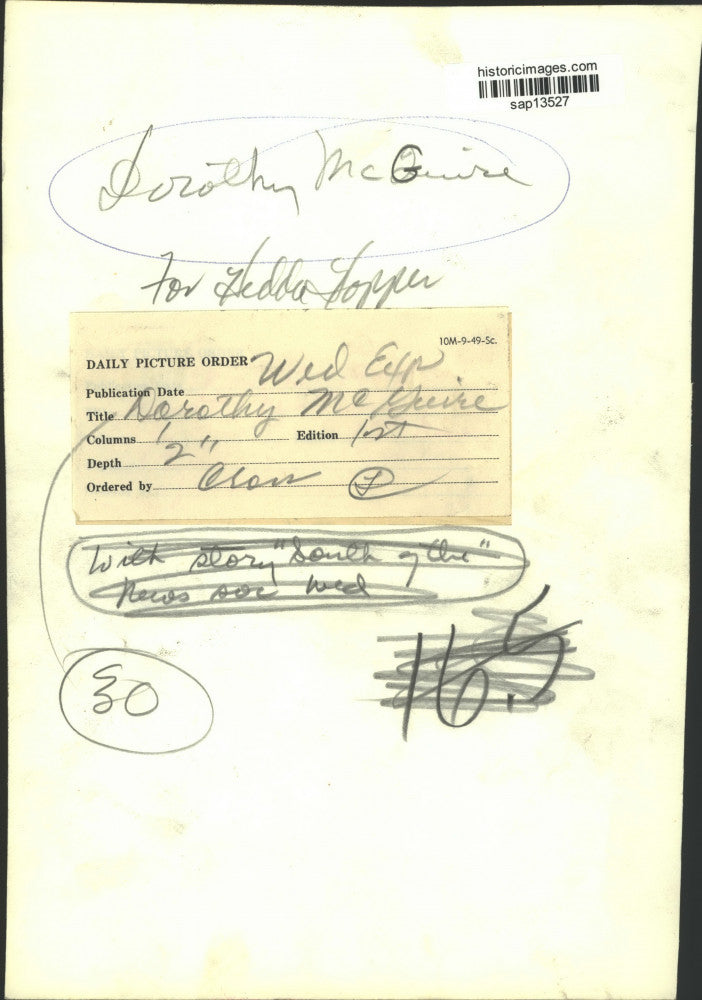 historicimages.com
sap13527
Dorothy McGuire
For Hedda Hopper
10M-9-49-Sc.
DAILY PICTURE ORDER Wed Exp
Publication Date
Title Dorothy McGuire
Columns 1 Edition 1st
Depth 2"
Ordered by
With story "South of the"
News Wed
30
16.5